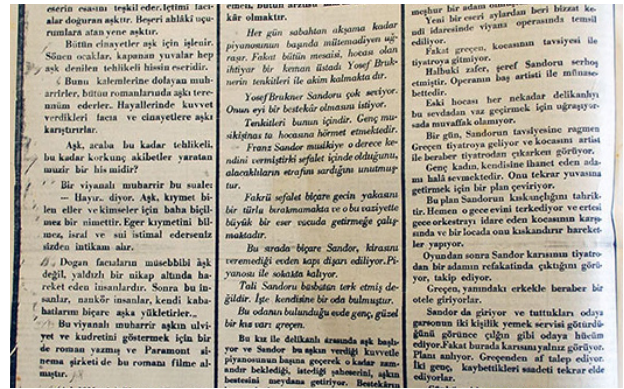 eserin esasını teşkil eder. İçtimai faci-
alar doğuran aşktır. Beşeri ahlâkı uçu-
rumlara atan yene aşktır.
Bütün cinayetler aşk için işlenir.
Sönen ocaklar, kapanan yuvalar hep
aşk denilen tehlikeli hissin eseridir.
Bunu kalemlerine dolayan muh-
arrirler, bütün romanlarında aşkı tere-
nnüm ederler. Hayallerinde kuvvet
verdikleri facia ve cinayetlere aşkı
karıştırırlar.
Aşk, acaba bu kadar tehlikeli,
bu kadar korkunç akibetler yaratan
muzir bir his midir?
Bir viyanalı muharrir bu suale:
— Hayır. diyor. Aşk, kıymet bi-
len eller ve kimseler için baha biçil-
mez bir nimettir. Eger kıymetini bil-
mez, israf ve sui istimal ederseniz
sizden intikam alır.
Dogan facıaların müsebbibi aşk
değil, yaldızlı bir nikap altında ha-
reket eden insanlardır. Sonra bu in-
sanlar, nankör insanlar, kendi kaba-
hatlarını biçare aşka yükletirler.
Bu viyanalı muharrir aşkın ulvi-
yet ve kudretini göstermek için bir
de roman yazmış ve Paramont si-
nema şirketi de bu romanı filme al-
mıştır.
kâr olmaktır.
Her gün sabahtan akşama kadar
piyanosunun başında mütemadiyen uğ-
raşır. Fakat bütün mesaisi, hocası olan
ihtiyar bir keman üstadı Yosef Bruk-
nerin tenkitleri ile akim kalmakta dır.
Yosef Brukner Sandoru çok seviyor.
Onun eyi bir bestekâr olmasını istiyor.
Tenkitleri bunun içindir. Genç mu-
sikişinas ta hocasına hörmet etmektedir.
Franz Sandor musikiye o derece ke-
ndini vermiştirki sefalet içinde olduğunu,
alacaklıların etrafını sardığını unutmuş
tur.
Fakrü sefalet biçare gecin yakasını
bir türlü bırakmamakta ve o bu vaziyetle
büyük bir eser vucuda getirmeğe çalış-
maktadır.
Bu sırada biçare Sandor, kirasını
veremediği evden kapı dışarı ediliyor. Pi-
yanosu ile sokakta kalıyor.
Tali Sandoru büsbütün terk etmiş de-
ğildir. İşte kendisine bir oda bulmuştur.
Bu odanın bulunduğu evde genç, güzel
bir kız varı greçen.
Bu kız ile delikanlı arasında aşk başlı-
yor ve Sandor bu aşkın verdiği kuvvetle
piyanosunun başına geçerek o kadar zam-
andır beklediği, istediği şaheserini, aşkın
bestesini meydana getiriyor. Bestekârın
meşhur bir adam
Yeni bir eseri aylardan beri bizzat ke-
ndi idaresinde viyana operasında temsil
ediliyor.
Fakat greçen, kocasının tavsiyesi ile
tiyatroya gitmiyor.
Halbuki zafer, şeref Sandoru serhoş
etmiştir. Operanın baş artisti ile münase-
bettedir.
Eski hocası her nekadar delikanlıyı
bu sevdadan vaz geçirmek için uğraşıyor-
sada muvaffak olamıyor.
Bir gün, Sandorun tavsiyesine ragmen
Greçen tiyatroya geliyor ve kocasını artist
ile beraber tiyatrodan çıkarken görüyor.
Genç kadın, kendisine ihanet eden ada-
mı halâ sevmektedir. Onu tekrar yuvasına
getirmek için bir plan çeviriyor.
Bu plan Sandorun kıskınçlığını tahrik-
tir. Hemen o gece evini terkediyor ve ertesi
gece orkestrayı idare eden kocasının karşı-
sında ve bir locada onu kıskandırır hareket-
ler yapıyor.
Oyundan sonra Sandor karısının tiyatro-
dan bir adamın refakatinda çıktığını görü-
yor, takip ediyor.
Greçen, yanındaki erkekle beraber bir
otele giriyorlar.
Sandor da giriyor ve tuttukları odaya
garsonun iki kişilik yemek servisi götürdü-
ğünü görünce çılgın gibi odaya hücüm
ediyor. Fakat burada karısını yalnız görüyor.
Planı anlıyor. Greçenden af talep ediyor.
İki genç, kaybettikleri saadeti tekrar elde
ediyorlar.